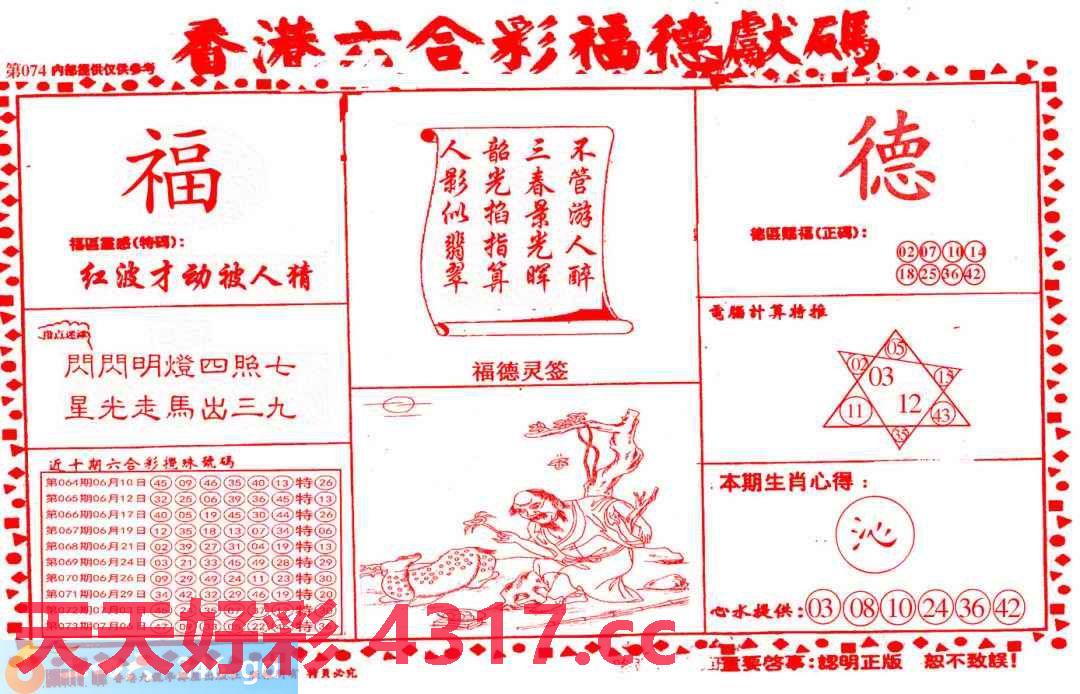 香港六合彩福德獻碼
第074 内部提供仅供参考
福
福區靈感(特碼):
红波才动被人猜
指点迷津
閃閃明燈四照七
星光走馬出三九
近十期六合彩攪珠號碼
第064期06月10日 45 09 46 35 40 13 特 26
第065期06月12日 32 25 06 39 36 45 特 13
第066期06月17日 40 05 19 45 30 44 特 26
第067期06月19日 12 35 18 13 07 34 特 06
第068期06月21日 02 39 27 31 04 19 特 13
第069期06月24日 03 21 33 45 49 28 特 29
第070期06月26日 09 29 49 24 11 23 特 30
第071期06月29日 34 42 32 29 46 19 特 20
不管游人醉
三春景光暉
韶光掐指算
人影似翡翠
福德灵签
德
德區賜福(正碼):
02 07 10 14
18 25 36 42
電腦計算特推
05
02 03 15
11 12 43
35
本期生肖心得:
沁
心水提供:03 08 10 24 36 42
天天好彩 4317.cc
重要啓事:認明正版 恕不致誤!